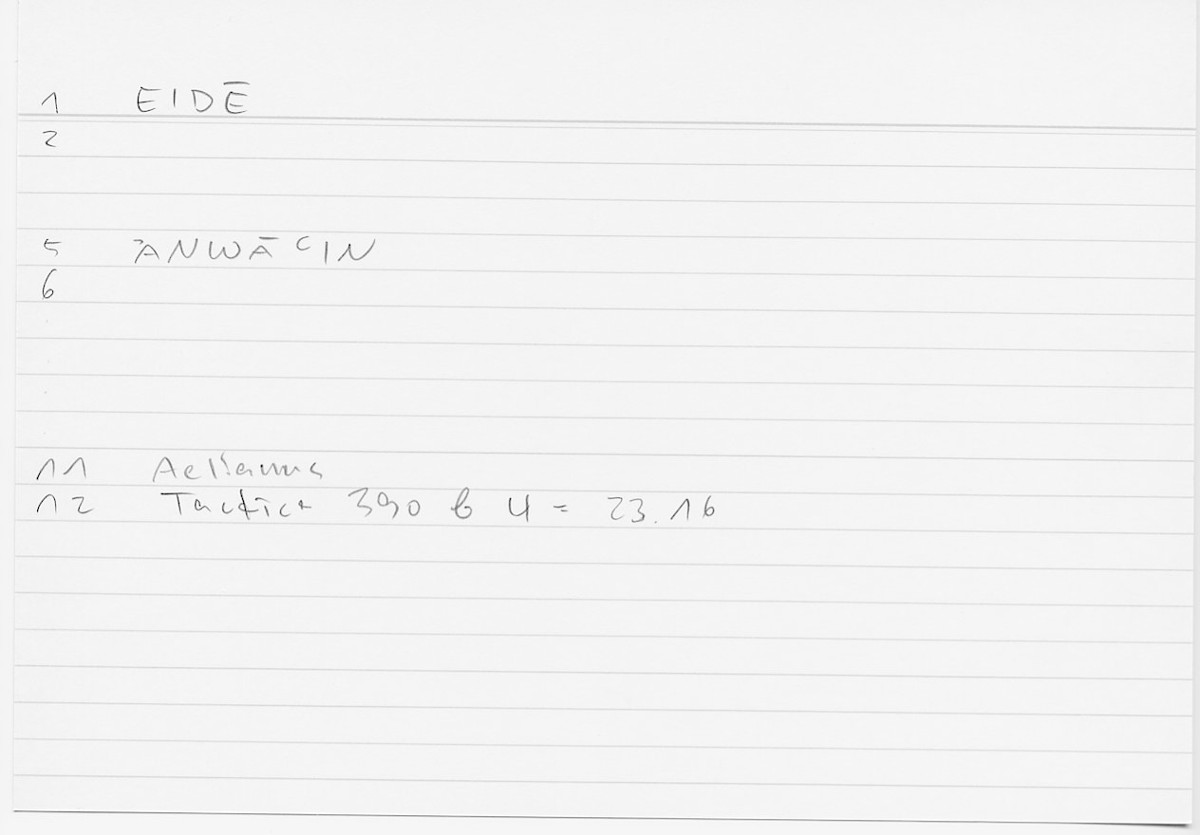 1 EIDĒ
2
5 ʾANWĀʿIN
6
11 Aelianus
12 Tactica 390 b 4 = 23.16